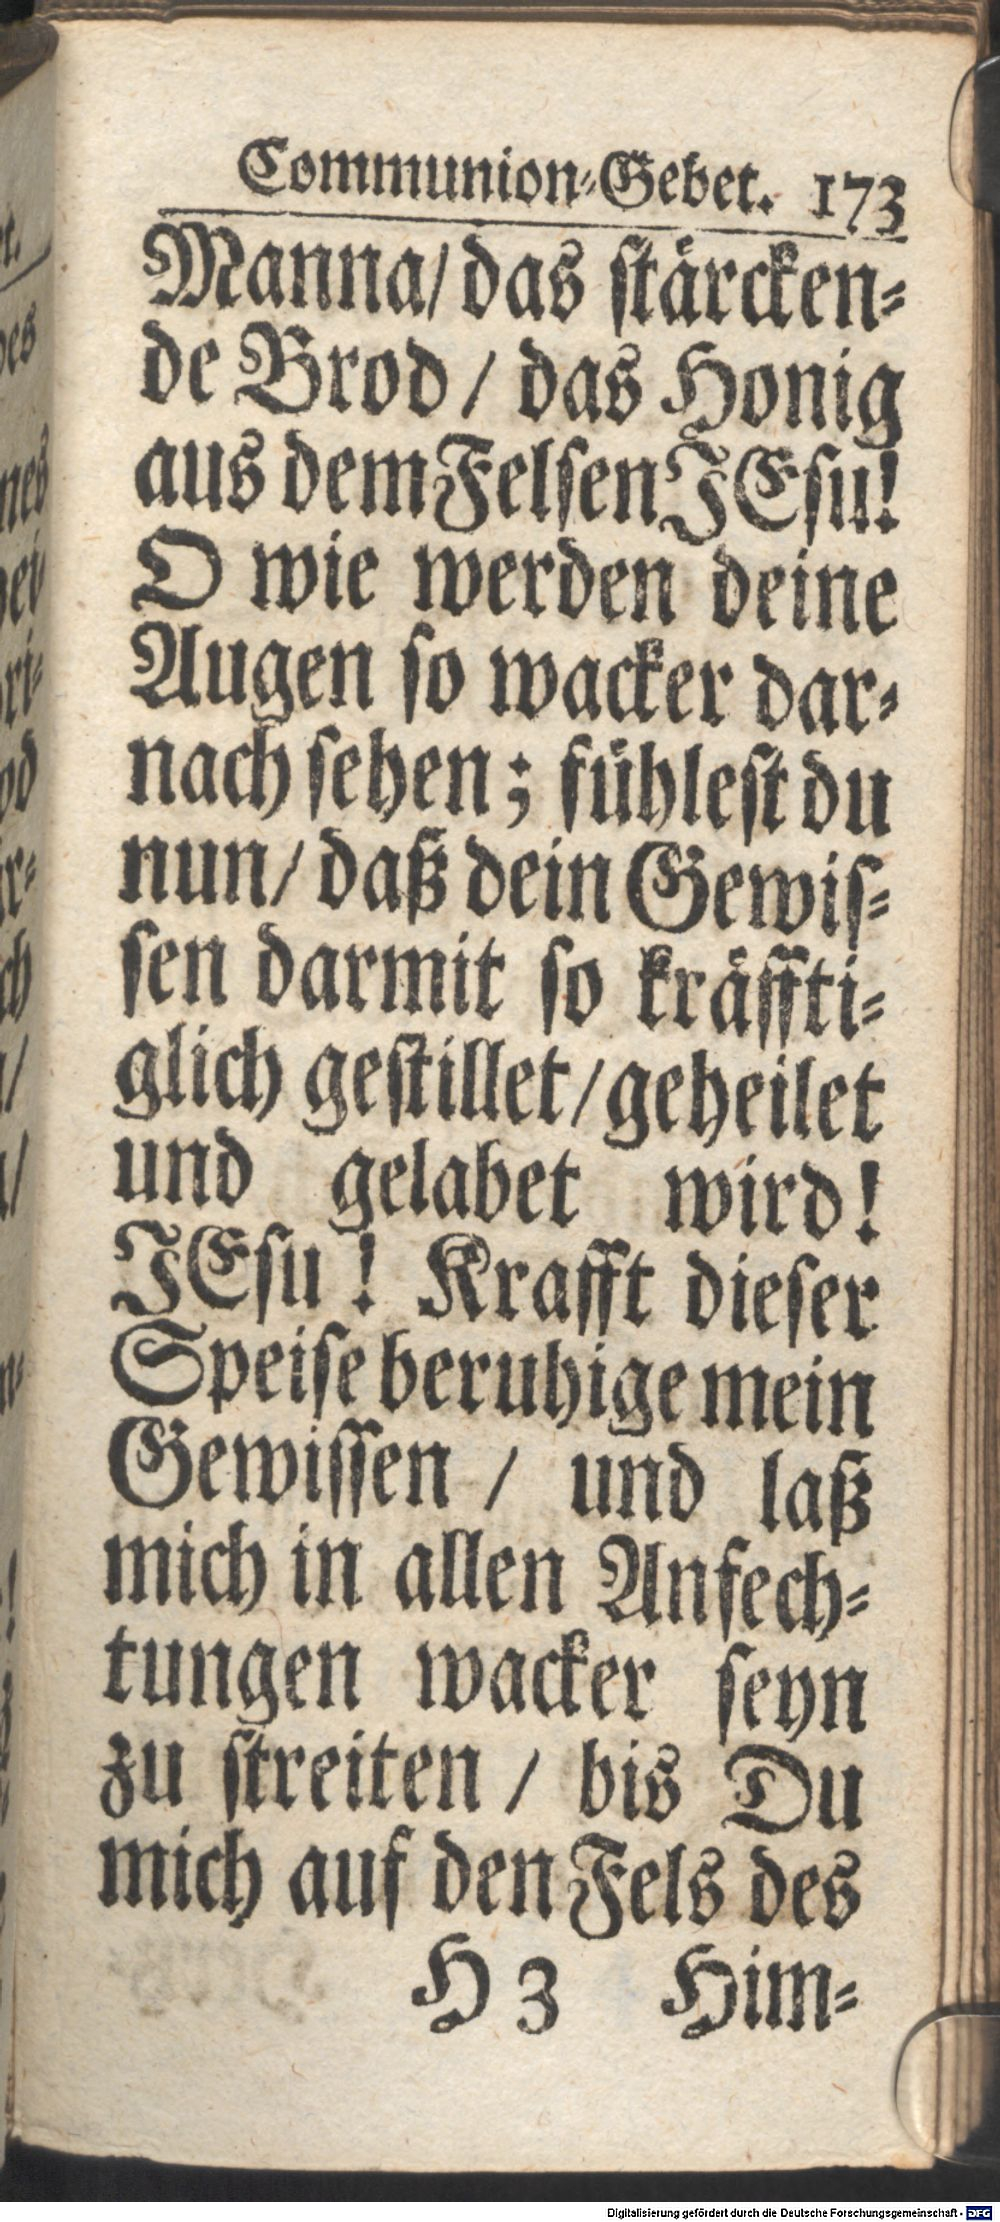 Communion-Gebet. 173
Manna/ das stärcken-
de Brod / das Honig
aus dem Felsen JEsu!
O wie werden deine
Augen so wacker dar-
nach sehen; fühlest du
nun/ daß dein Gewis-
sen darmit so kräffti-
glich gestillet/ geheilet
und gelabet wird!
JEsu! Krafft dieser
Speise beruhige mein
Gewissen / und laß
mich in allen Anfech-
tungen wacker seyn
zu streiten / bis Du
mich auf den Fels des
H 3 Him-
Digitalisierung gefördert durch die Deutsche Forschungsgemeinschaft - DFG